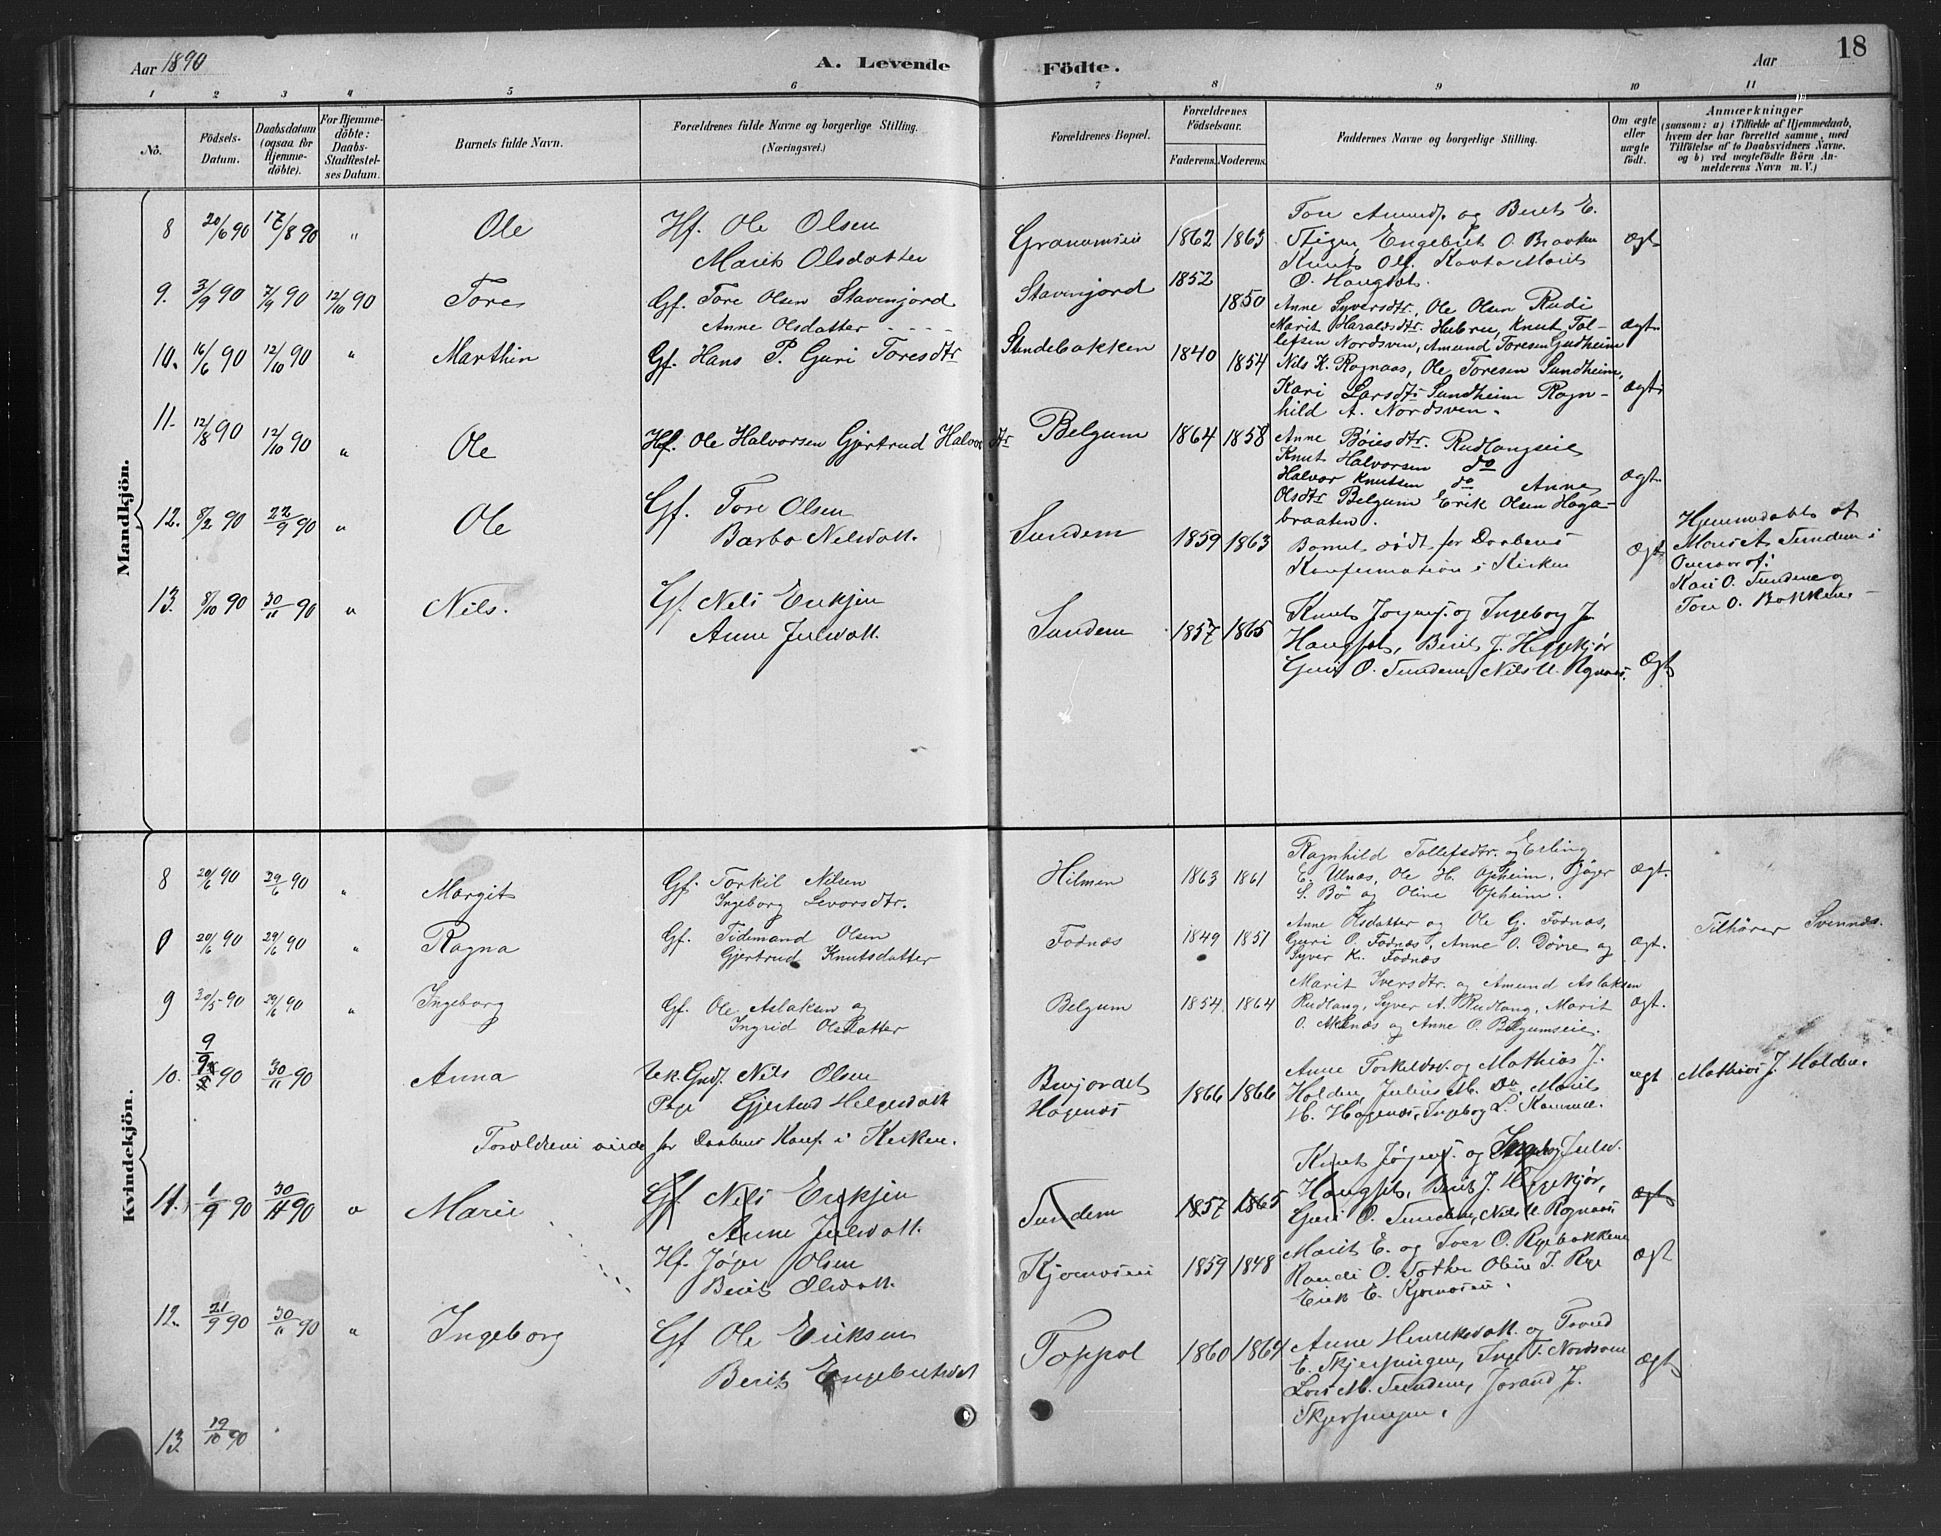 Aar 1890
A. Levende Födte.
Aar
18
1 2 3 4 5 6 7 8 9 10 11
No.
Födsels-
Datum.
Daabsdatum
(ogsaa for
Hjemme-
döbte).
For Hjemme-
döbte:
Daabs-
Stadfæstel-
ses Datum.
Barnets fulde Navn.
Forældrenes fulde Navne og borgerlige Stilling.
(Næringsvei.)
Forældrenes Bopæl.
Forældrenes
Födselsaar.
Faderens. Moderens.
Faddernes Navne og borgerlige Stilling.
Om ægte
eller
uægte
födt.
Anmærkninger
(saasom: a) i Tilfælde af Hjemmedaab,
hvem der har forrettet samme, med
Tilföielse af to Daabsvidners Navne.
og b) ved uægtefödte Börn An-
melderens Navn m. V.)
Mandkjön.
8 20/6 90 17/8 90 " Ole
Hf. Ole Olsen
Marit Olsdatter
Granumseie 1862 1863
Tore Amunds. og Berit E.
Engebret O. Braaten
Knut Ols.
O. Haugset.
ægt
9. 3/9 90 7/9 90 12/10 90 Tore
Gf. Tore Olsen Stavenjord
Anne Olsdatter - - - -
Stavenjord 1852 1850
Anne Syversdtr., Ole Olsen Rudi
Marit Haraldsdtr. Hubreu, Knut Tol-
lefsen Nordsven, Amund Toresen Gudheim
ægt.
10. 16/6 90 12/10 90 " Marthin
Gf. Hans P. Guri Toresdtr
Sundebakken 1840 1854
Nils K. Rognaas, Ole Toresen Sundheim,
Kari Larsdtr Sundheim Ragn-
hild A. Nordsven.
ægt.
11. 12/8 90 12/10 90 " Ole
Hf. Ole Halvorsen Gjertrud Halvorsdtr
Belgum 1864 1858
Anne Bøiesdtr. Rudlangseie
Knut Halvorsen do
Halvor Knutsen do Anne
Olsdtr Belgum Erik Olsen Haga-
braaten.
ægt.
12. 8/2 90 22/9 90 " Ole
Gf. Tore Olsen
Barbo Nilsdatt.
Sundem 1859 1863
Barnet født for Daabens
Konfirmation i Kirken
Ægt
Hjemmedøbt af
Marit A. Sundem i
Overvær af:
Kari O. Sundem og
Tore O. Bakken
13. 8/10 90 30/11 90 " Nils.
Gf. Nils Eriksen
Anne Julsdatt.
Sundem 1857 1865
Knut Jørgens. og Ingeborg J.
Haugset, Berit J.
Guri O. Sundem, Nils U. Rognaas.
Ægt
Kvindekjön.
8 20/6 90 29/6 90 " Margit
Gf. Torkil Nilsen
Ingeborg Levorsdtr.
Hilmen 1863 1861
Ragnhild Tollefsdtr. og Erling
E. Ulnæs, Ole H. Opheim, Bøger
S. Bø og Oline Opheim.
ægt.
20/6 90 29/6 90 " Ragna
Gf. Tidemand Olsen
Gjertrud Knutsdatter
Fodnæs 1849 1851
Anne Olsdatter og Ole G. Fodnæs,
Guri O. Fodnæs, Anne O. Døvre og
Syver K. Fodnæs
ægt.
Tilhører Svennæs.
9 30/5 90 29/6 90 " Ingeborg
Gf. Ole Aslaksen og
Ingrid Olsdatter
Belgum 1854 1864
Marit Iversdtr. og Amund Aslaksen
Rudlang, Syver A. Rudlang, Marit
O. og Anne O. Belgumseie.
ægt.
10. 90 30/11 90 Anna
Nils Olsen
Pige Gjertrud Helgesdatt.
Hagenæs 1866 1866
Anne Torkelsd. og Mathias J.
Holden, Julius M. Do, Marit
H. Hagenæs, Ingeborg L.
ægt
Mathias J. Holden.
Forældrene viede før Daabens Konf. i Kirken.
11. 1/9 90 30/11 90 " Marie
Gf. Nils Eriksen
Anne Julsdatt.
Sundem 1857 1865
Knut Jørgens. og Ingeborg Julsd.
Haugset, Berit J.
Guri O. Sundem, Nils U. Rognaas
Ægt
Hf. Jøger Olsen
Berit Olsdatt.
1859 1848
Marit E. og Tore O. Ryebakken
Randi O. Oline J. Rye
Erik E.
Ægt
12. 21/9 90 30/11 90 " Ingeborg
Gf Ole Eriksen
Berit Engebretsdat
Toppol 1860 1864
Anne Henriksdatt. og Trond
E. Inge T. Nordsven
Lars M. Sundem, Jorand J.
Ægt
13. 19/10 90